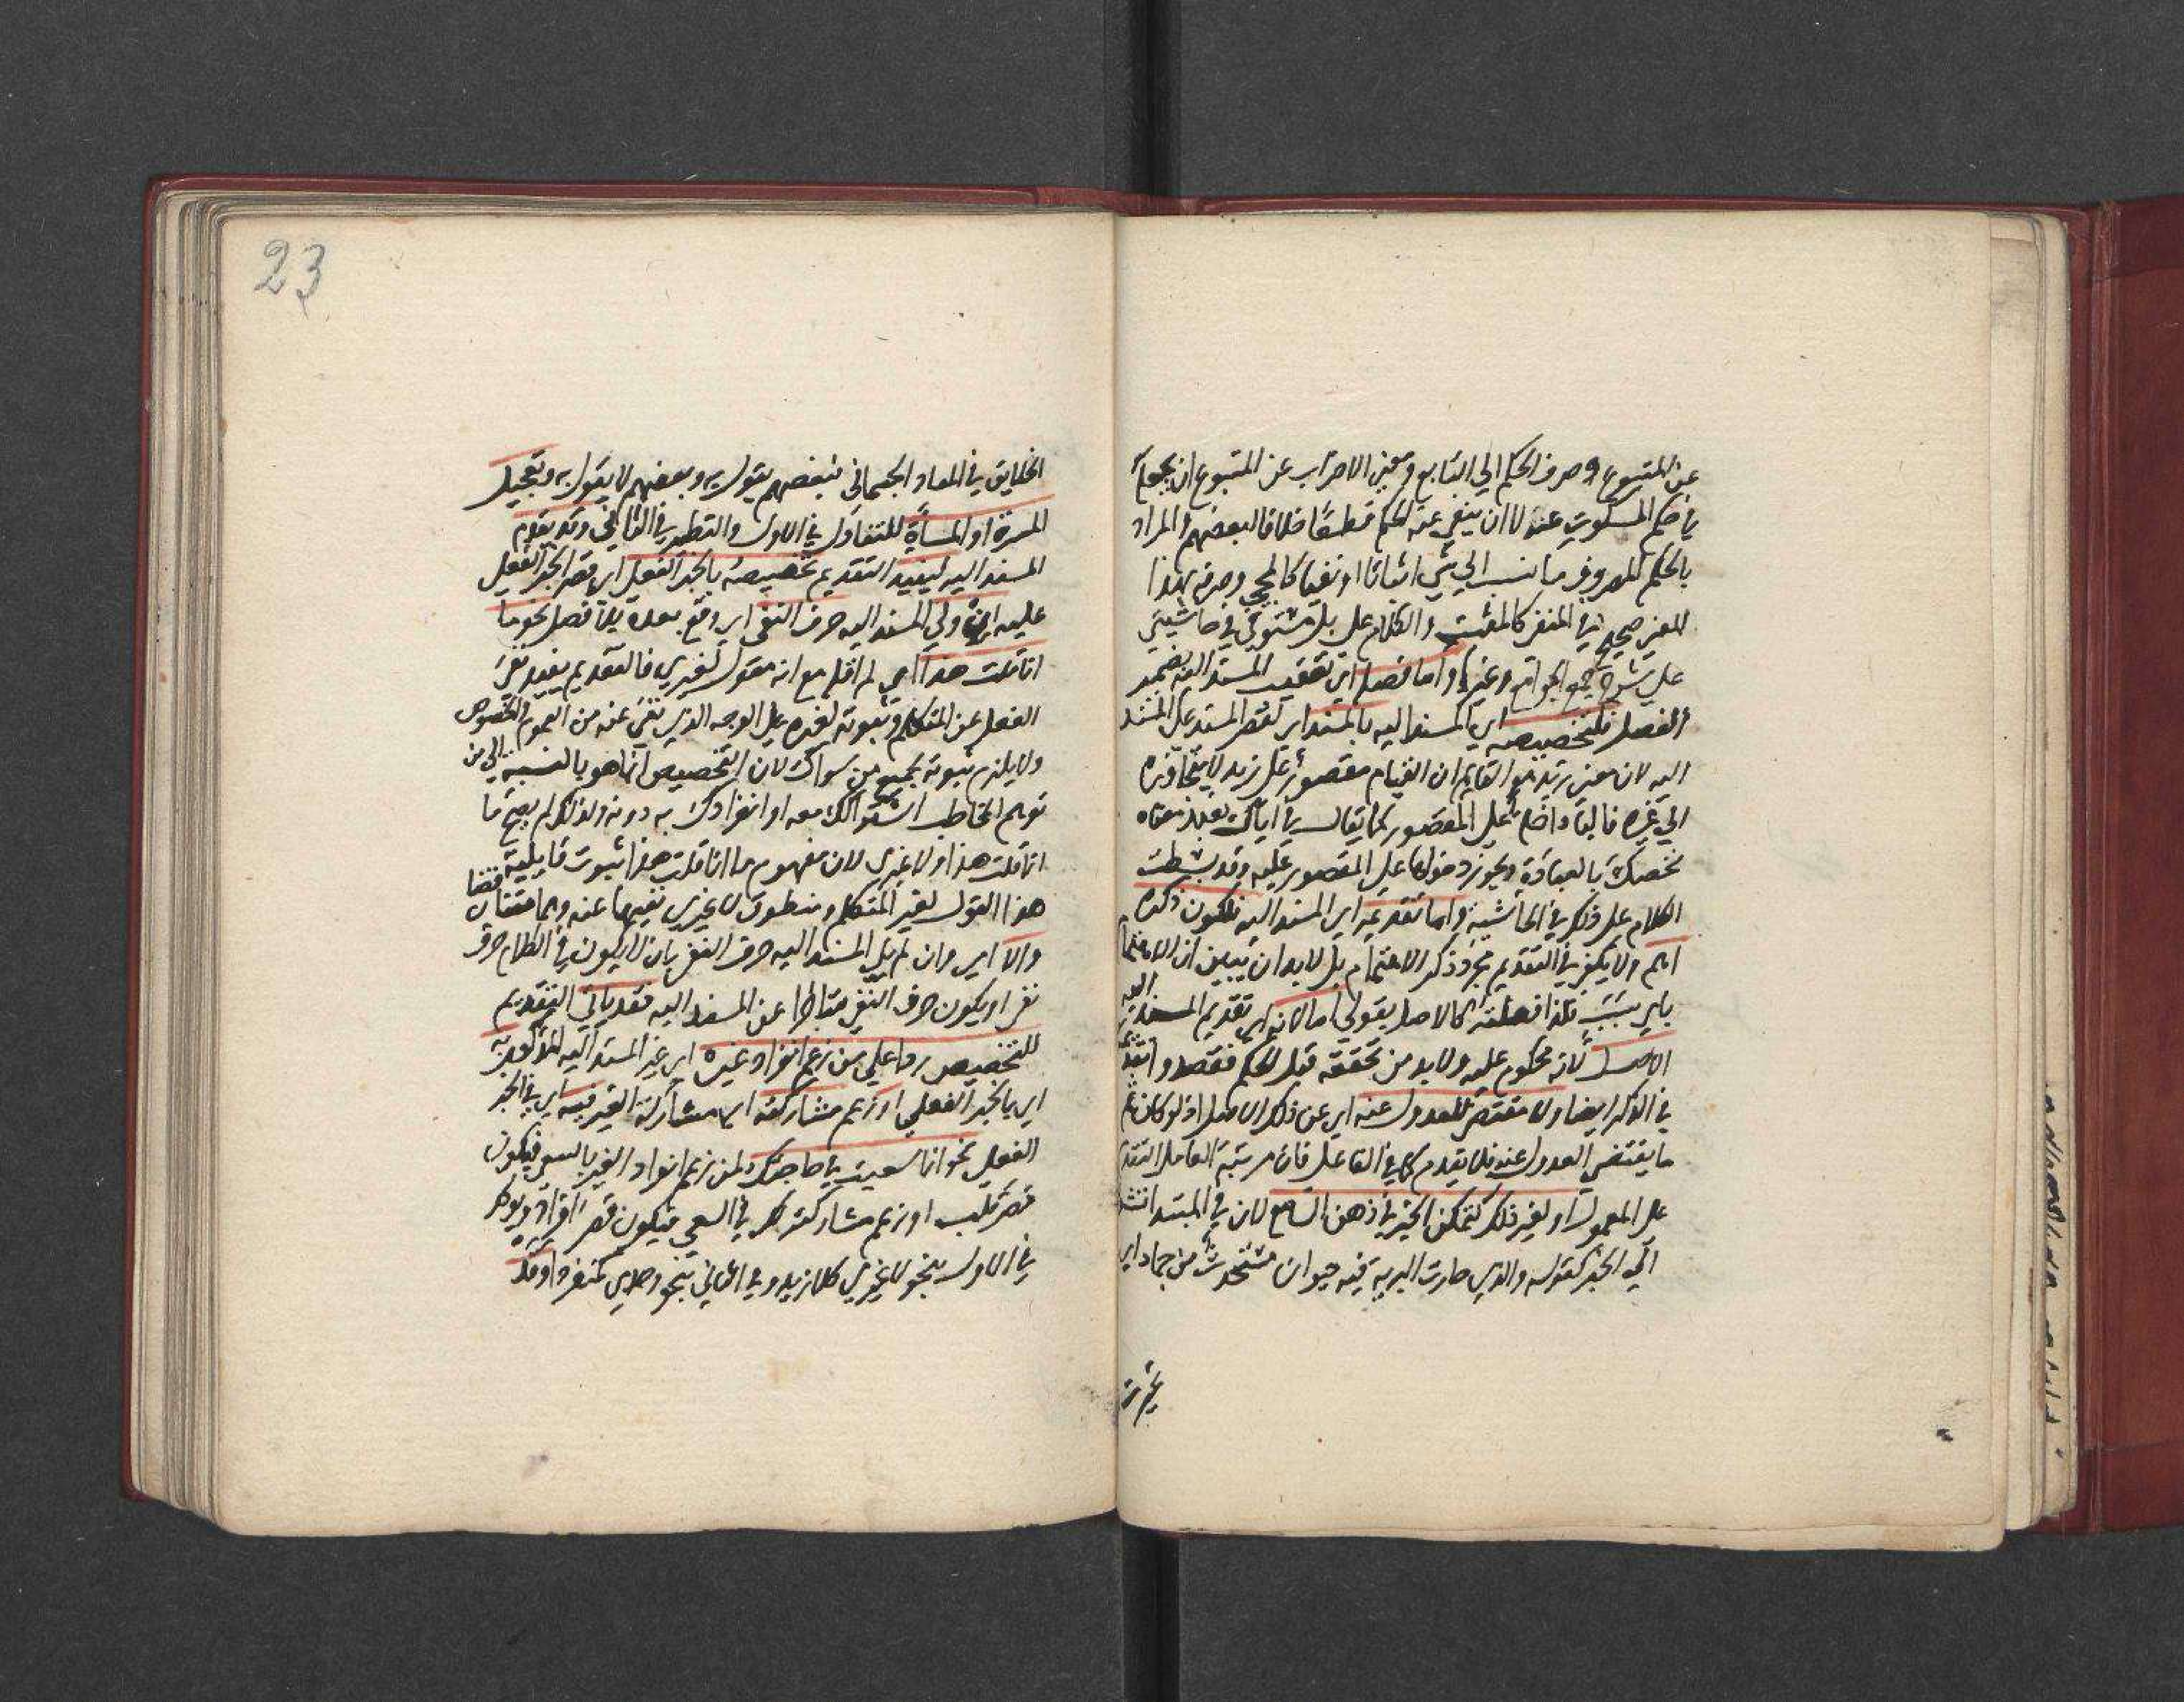 عن المتبوع وصرف الحكم الي التابع ومعني الاضراب عن المتبوع ان يجعل
في حكم المسكوت عنه لا ان ينفي عنه الحكم قطعا خلافا لبعضهم والمراد
بالحكم المصروف ما نسب الي شي اثباتا او نفيا كالمجي وصرفه بهذا
المعني صحيح في المنفي كالمثبت والكلام علي بل مستوفي في حاشيتي
علي شرح جمع الجوامع وغيرها واما فصله اي تعقيب المسند اليه بضمير
الفصل فلتخصيصه اي المسند اليه بالمسند اي لقصر المسند علي المسند
اليه لان معني زيد هو القايم ان القيام مقصور علي زيد لا يتجاوزه
الي غيره فالباء داخلة علي المقصور كما يقال في اياك نعبد معناه
نخصك بالعبادة ويجوز دخولها علي المقصور عليه وقد بسطت
الكلام علي ذلك في الحاشية واما تقديمه اي المسند اليه فلكون ذكره
اهم ولا يكفي في التقديم مجرد ذكر الاهتمام بل لا بد ان يبين ان الاهتمام
باي سبب فلذا فصلته كالاصل بقولي اما لانه اي تقديم المسند اليه
الاصل لانه محكوم عليه ولا بد من تحققه قبل الحكم فقصدوا تقدمه
في الذكر ايضا ولا مقتضي للعدول عنه اي عن ذلك الاصل اذ لو كان ثم
ما يقتضي العدول عنه فلا يقدم كما في الفاعل فان مرتبة العامل التقدم
علي المعمول او لغير ذلك كتمكن الخبر في ذهن السامع لان في المبتدا تشويقا
الي الخبر كقوله والذي حارت البرية فيه حيوان مستحدث من جماد اي
تحيرت
23
الخلايق في المعاد الجسماني فبعضهم يقول به وبعضهم لا يقول به وتعجيل
المسرة او المساءة للتفاول في الاول والتطير في الثاني وقد يقدم
المسند اليه ليفيد التقديم تخصيصه بالخبر الفعلي اي قصر الخبر الفعلي
عليه ان ولي المسند اليه حرف النفي اي وقع بعده بلا فصل نحو ما
انا قلت هذا اي لم اقله مع انه مقول لغيري فالتقديم يفيد نفي
الفعل عن المتكلم وثبوته لغيره علي الوجه الذي نفي عنه من العموم والخصوص
ولا يلزم ثبوته لجميع من سواك لان التخصيص انما هو بالنسبة الي من
توهم المخاطب اشتراكك معه او انفرادك به دونه ولذلك لم يصح ما
انا قلت هذا ولا غيري لان مفهوم ما انا قلت هذا ثبوت قايلية
هذا القول لغير المتكلم ومنطوق لا غيري نفيها عنه وهما متناقضان
والا اي وان لم يل المسند اليه حرف النفي بان لا يكون في الكلام حرف
نفي او يكون حرف النفي متاخرا عن المسند اليه فقد ياتي التقديم
للتخصيص ردا علي من زعم انفراد غيره اي غير المسند اليه المذكور به
اي بالخبر الفعلي او زعم مشاركته اي مشاركة الغير فيه اي في الخبر
الفعلي نحو انا سعيت في حاجتك لمن زعم انفراد الغير بالسعي فيكون
قصر قلب او زعم مشاركته لك في السعي فيكون قصر افراد ويوكد
في الاول بنحو لا غيري كلا زيد وفي الثاني بنحو وحدي كمنفردا وقد